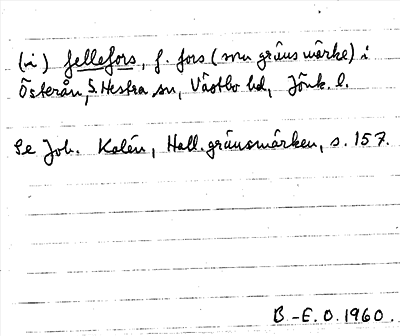 (i) fellefors, f. fors (nu gränsmärke) i
Österån, S. Hestra sn, Västbo hd, Jönk. l.
Se Joh. Kalén, Hall. gränsmärken, s. 157.
B.-E. O. 1960.